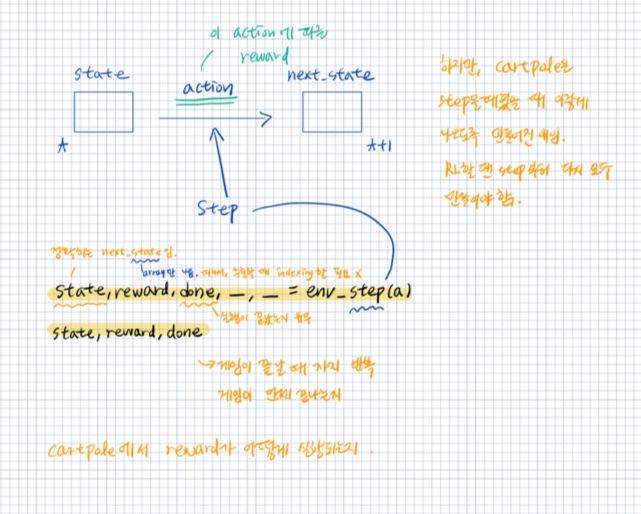 이 action에 따른
reward
state
action
next_state
t
t+1
step
하지만, cartpole은
step을 때렸을 때 이렇게
나오도록 만들어진 게임.
RL할 땐 step부터 다시 모두
만들어야 함.
정확하는 next_state임.
array만 나옴. 때문에, 출력할 때 indexing할 필요 X
state, reward, done, _, _ = env_step(a)
실행이 끝났는지 유무
state, reward, done
→ 게임이 끝날 때 까지 반복
게임이 언제 끝나는지
cartpole에서 reward가 어떻게 실행되는지.